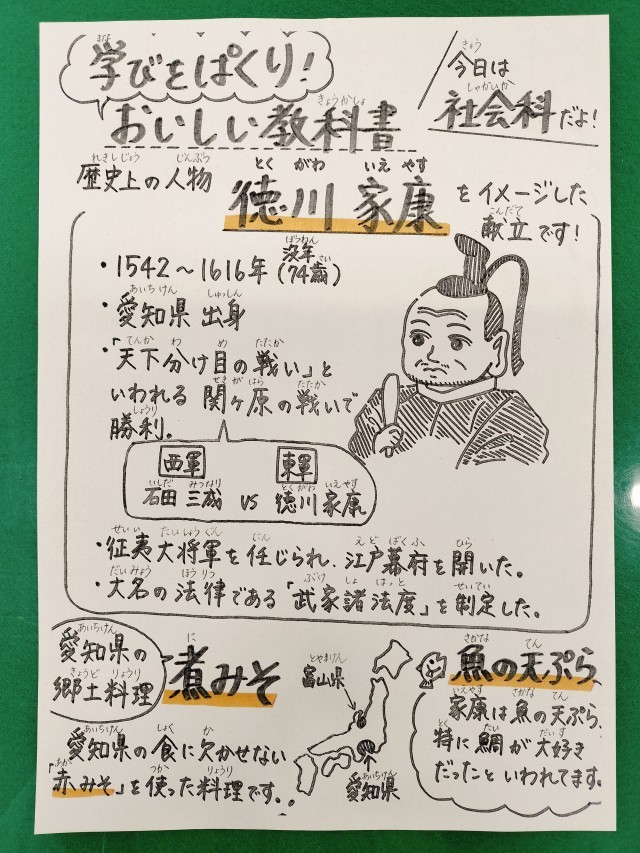 学びをぱくり!
おいしい教科書
今日は
社会科だよ!
歴史上の人物 徳川家康をイメージした
献立です!
・1542～1616年(没年74歳)
・愛知県出身
・「天下分け目の戦い」と
いわれる関ヶ原の戦いで
勝利。
西軍 東軍
石田三成 VS 徳川家康
・征夷大将軍を任じられ、江戸幕府を開いた。
・大名の法律である「武家諸法度」を制定した。
愛知県の
郷土料理
煮みそ
愛知県の食に欠かせない
「赤みそ」を使った料理です。
富山県
愛知県
魚の天ぷら
家康は魚の天ぷら、
特に鯛が大好き
だったといわれてます。